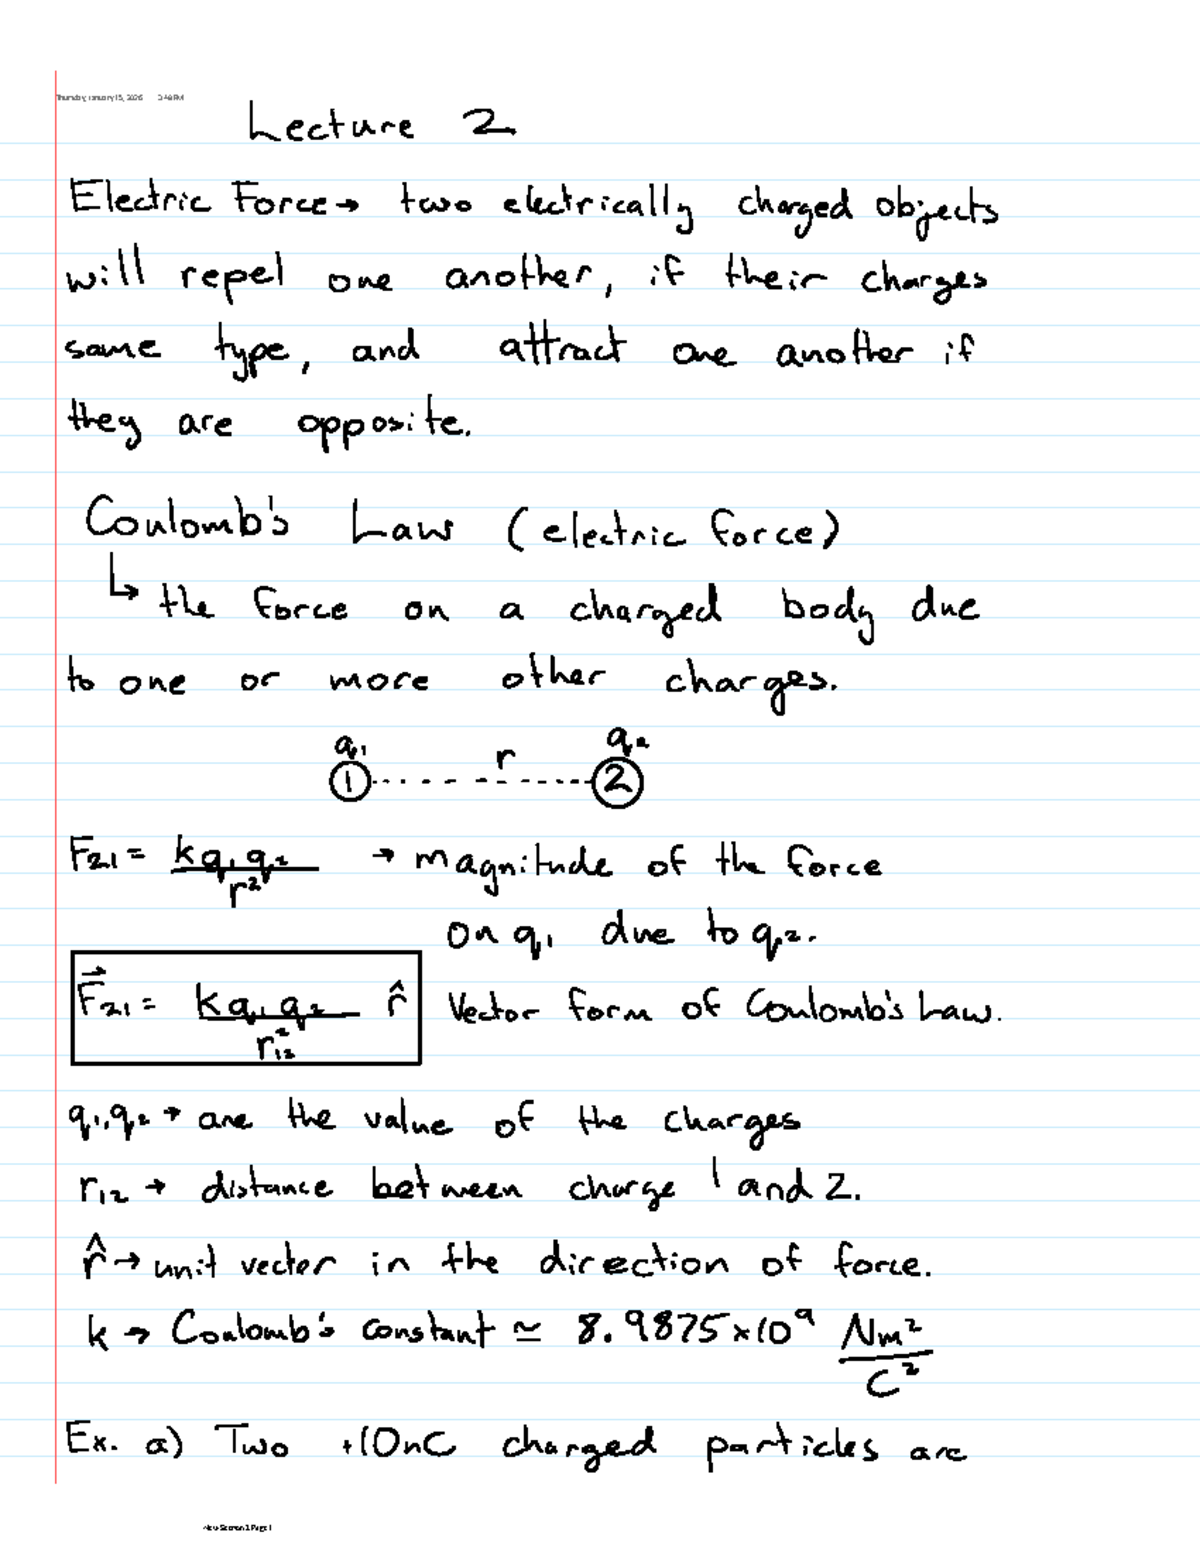 Thursday, January 15, 2026 2:48 PM
Lecture 2
Electric Force → two electrically charged objects
will repel one another, if their charges
same type, and attract one another if
they are opposite.
Coulomb's Law (electric force)
↳ the force on a charged body due
to one or more other charges.
q₁ r q₂
1 2
F₂₁ = kq₁q₂/r² → magnitude of the force
on q₁ due to q₂.
F⃗₂₁ = kq₁q₂/r₁₂² r̂ Vector form of Coulomb's Law.
q₁,q₂ → are the value of the charges
r₁₂ → distance between charge 1 and 2.
r̂ → unit vector in the direction of force.
k → Coulomb's constant ≃ 8.9875×10⁹ Nm²/C²
Ex. a) Two +10nC charged particles are
New Section 1 Page 1